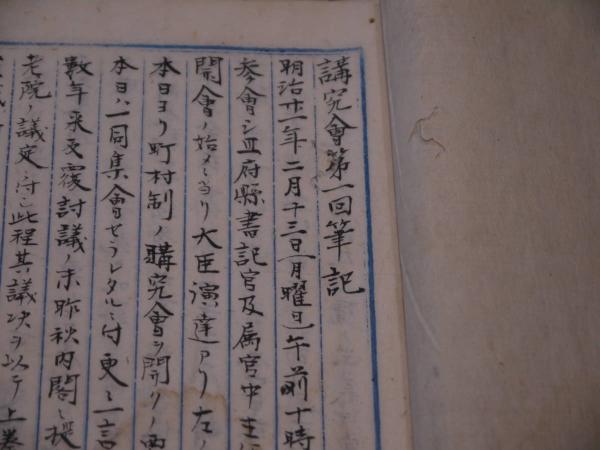 講究會第一回筆記
明治廿一年二月十三日月曜日午前十時
参會シ 府縣書記官及属官中主
開會ノ始メニ当リ大臣演達アリ左ノ
本日ヨリ町村制ノ講究会ヲ開クノ
本日ハ一同集會セラレタルニ付更ニ一言
數年来反覆討議ノ末昨秋内閣ニ提
老院ノ議定ニ付シ此程其議决ヲ以テ上奏